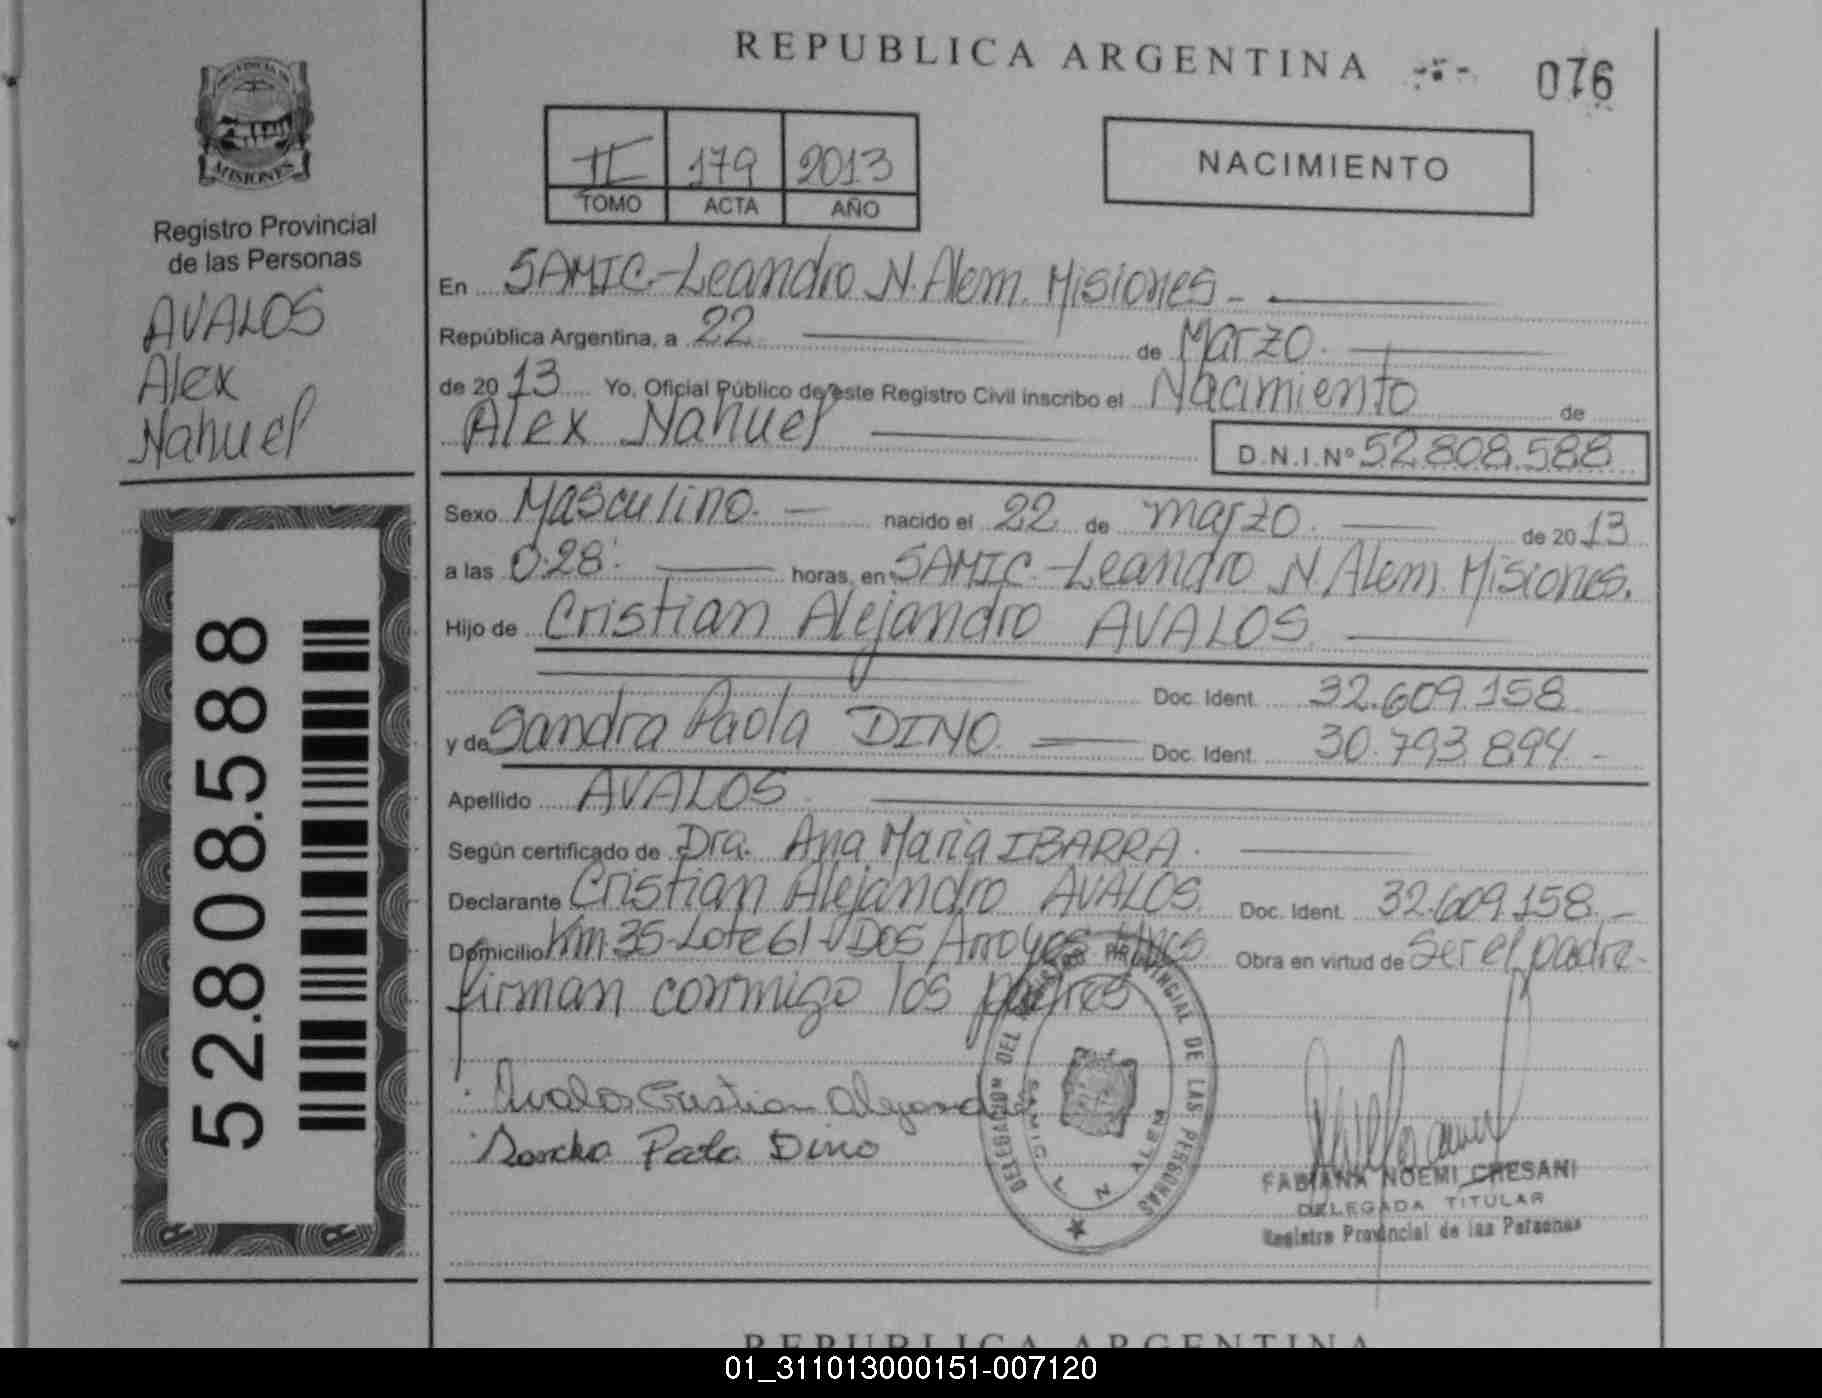 REPUBLICA ARGENTINA
076
PROVINCIA DE
MISIONES
Registro Provincial
de las Personas
AVALOS
Alex
Nahuel
II 179 2013
TOMO ACTA AÑO
NACIMIENTO
En SAMIC.-Leandro N. Alem. Misiones -
República Argentina, a 22 de Marzo.
de 20 13 Yo, Oficial Público de este Registro Civil inscribo el Nacimiento de
Alex Nahuel D.N.I.Nº 52.808.588
Sexo Masculino. nacido el 22 de marzo. de 20 13
a las 0:28' horas, en SAMIC.-Leandro N. Alem. Misiones.
Hijo de Cristian Alejandro AVALOS.
Doc. Ident. 32.609.158
y de Sandra Paola DINO Doc. Ident. 30.793.894.-
Apellido AVALOS
Según certificado de Dra. Ana Maria IBARRA.
Declarante Cristian Alejandro AVALOS. Doc. Ident. 32.609.158.-
Domicilio Km. 35-Lote 61-Dos Arroyos Obra en virtud de Ser el padre-
firman conmigo los padres
Avalos Cristian Alejandro
Sandra Paola Dino
DELEGACION DEL REGISTRO PROVINCIAL DE LAS PERSONAS
SAMIC L N ALEM
FABIANA NOEMI CHESANI
DELEGADA TITULAR
Registro Provincial de las Personas
52.808.588
REPUBLICA ARGENTINA
01_311013000151-007120